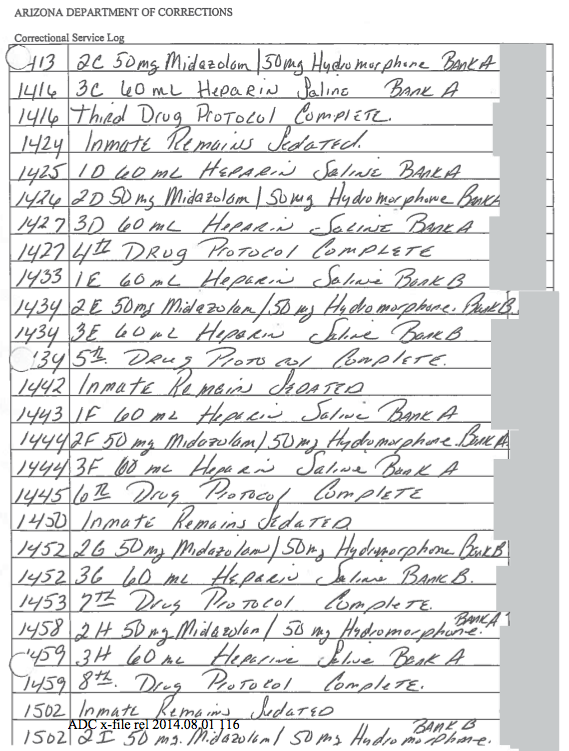 ARIZONA DEPARTMENT OF CORRECTIONS
Correctional Service Log
1413 2C 50mg Midazolam / 50mg Hydromorphone Bank A
1416 3C 60 mL Heparin Saline Bank A
1416 Third Drug Protocol Complete.
1424 Inmate Remains Sedated.
1425 1D 60 mL Heparin Saline Bank A
1426 2D 50 mg Midazolam / 50mg Hydromorphone Bank A
1427 3D 60 mL Heparin Saline Bank A
1427 4th Drug Protocol Complete
1433 1E 60 mL Heparin Saline Bank B
1434 2E 50mg Midazolam / 50 mg Hydromorphone. Bank B
1434 3E 60 mL Heparin Saline Bank B
1434 5th. Drug Protocol Complete.
1442 Inmate Remain Sedated
1443 1F 60 mL Heparin Saline Bank A
1444 2F 50 mg Midazolam / 50 mg Hydromorphone. Bank A
1444 3F 60 mL Heparin Saline Bank A
1445 6th Drug Protocol Complete
1450 Inmate Remains Sedated
1452 2G 50 mg Midazolam / 50mg Hydromorphone Bank B
1452 3G 60 mL Heparin Saline Bank B.
1453 7th Drug Protocol Complete.
1458 2H 50mg Midazolan / 50 mg Hydromorphone. Bank A
1459 3H 60 mL Heparine Saline Bank A
1459 8th. Drug Protocol Complete.
1502 Inmate Remains Sedated
ADC x-file rel 2014.08.01 116
1502 2I 50 mg. Midazolam / 50 mg Hydromorphone. Bank B